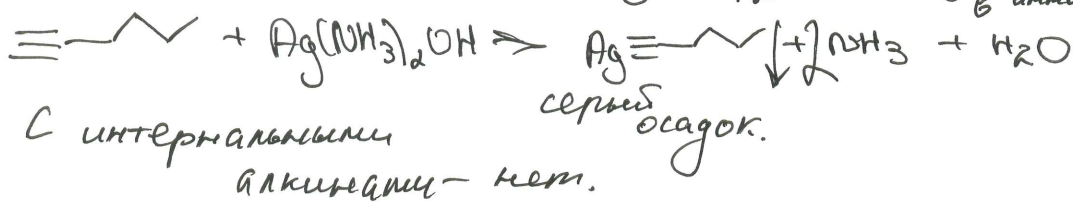 в амми
≡ + Ag(NH₃)₂OH → Ag≡ ↓ + 2NH₃ + H₂O
серый
осадок.
С интернальными
алкинами – нет.